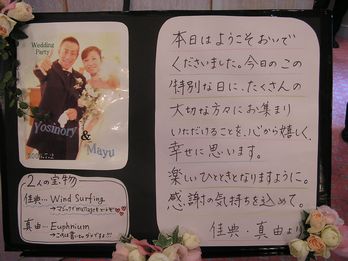 Wedding
Party
Yosinory
&
Mayu
2人の宝物
佳典… Wind Surfing
真由… Euphnium
本日はようこそおいで
くださいました。今日のこの
特別な日に、たくさんの
大切な方々にお集まり
いただけることを、心から嬉しく、
幸せに思います。
楽しいひとときとなりますように。
感謝の気持ちを込めて。
佳典・真由より